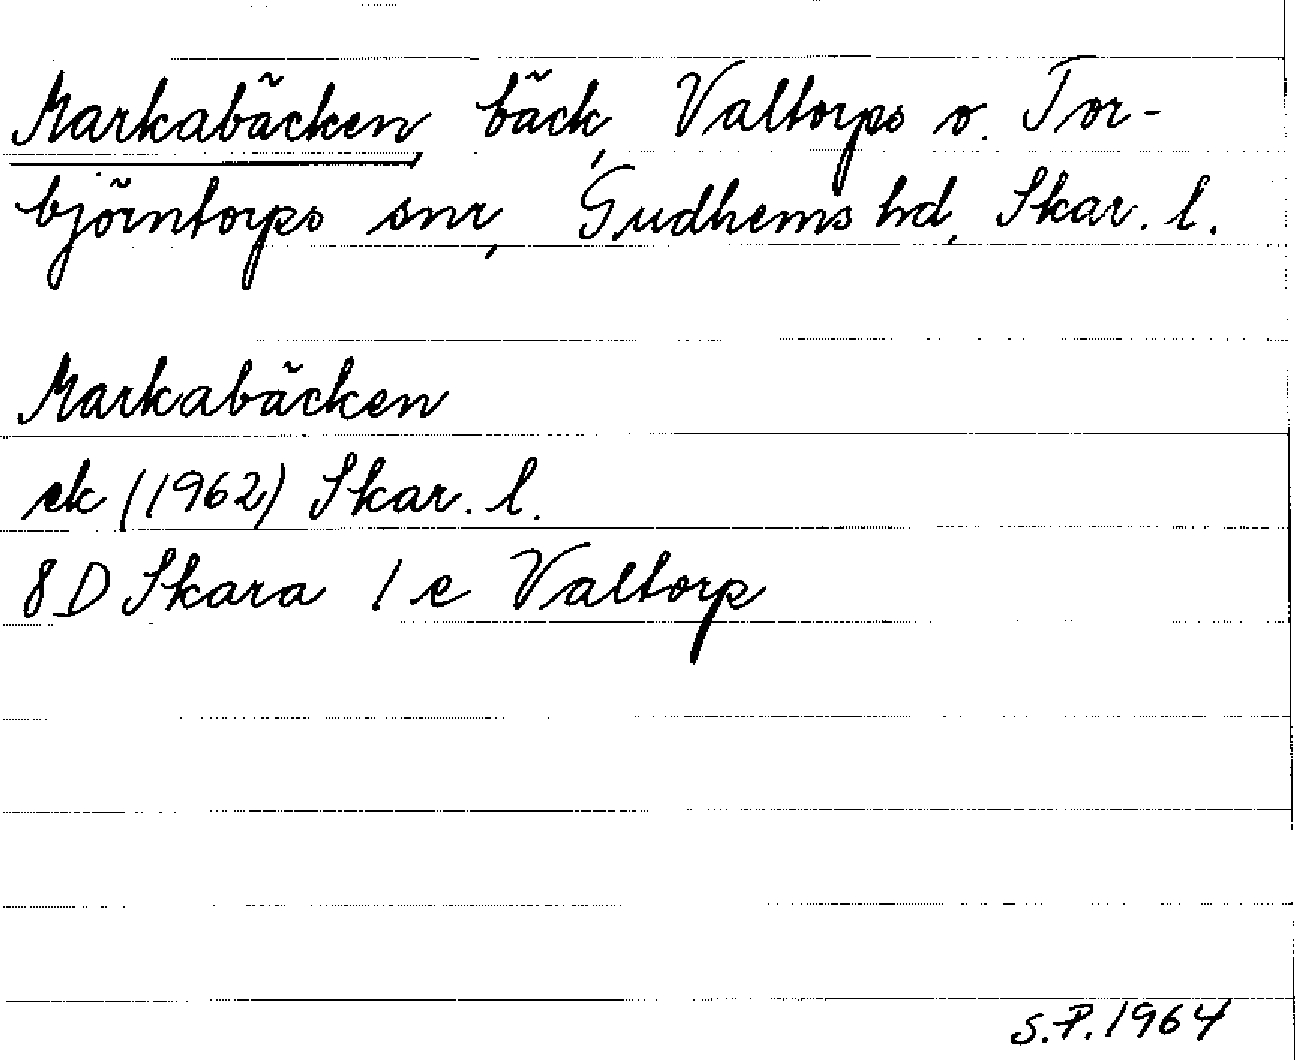 Markabäcken, bäck, Valtorps o. Tor-
björntorps snr, Gudhems hd, Skar. l.
Markabäcken
ek (1962) Skar. l.
8 D Skara 1 e Valtorp
S.P. 1964